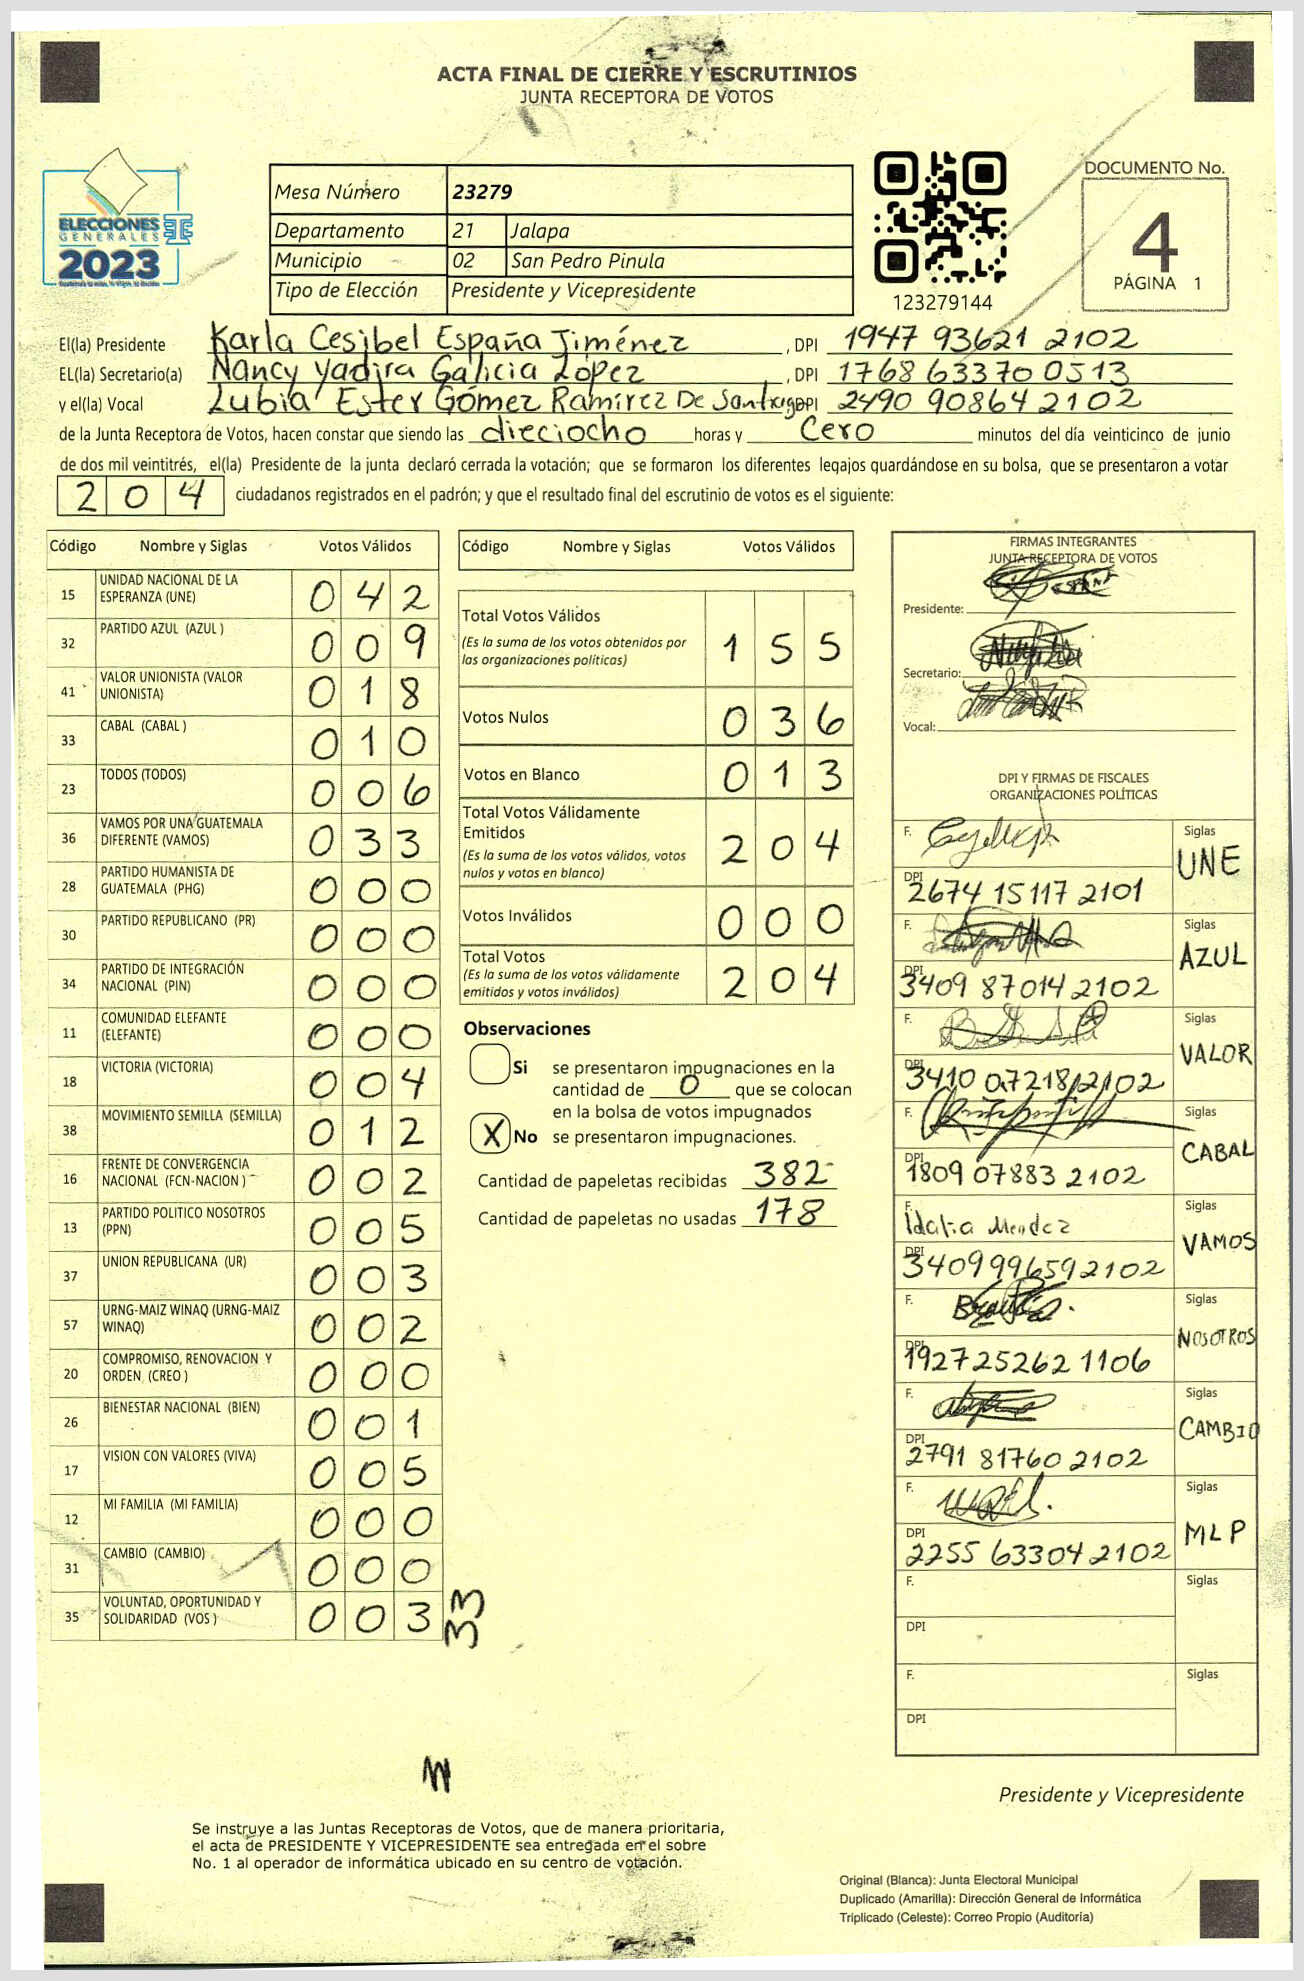 ACTA FINAL DE CIERRE Y ESCRUTINIOS
JUNTA RECEPTORA DE VOTOS
ELECCIONES
GENERALES
2023
Mesa Número 23279
Departamento 21 Jalapa
Municipio 02 San Pedro Pinula
Tipo de Elección Presidente y Vicepresidente
123279144
DOCUMENTO No.
4
PÁGINA 1
El(la) Presidente Karla Cesibel España Jiménez, DPI 1947 93621 2102
EL(la) Secretario(a) Nancy Yadira Galicia López, DPI 1768 63370 0513
y el(la) Vocal Lubia Ester Gómez Ramírez De Santiago DPI 2490 90864 2102
de la Junta Receptora de Votos, hacen constar que siendo las dieciocho horas y Cero minutos del día veinticinco de junio
de dos mil veintitrés, el(la) Presidente de la junta declaró cerrada la votación; que se formaron los diferentes legajos guardándose en su bolsa, que se presentaron a votar
204 ciudadanos registrados en el padrón; y que el resultado final del escrutinio de votos es el siguiente:
Código Nombre y Siglas Votos Válidos
15 UNIDAD NACIONAL DE LA ESPERANZA (UNE) 042
32 PARTIDO AZUL (AZUL) 009
41 VALOR UNIONISTA (VALOR UNIONISTA) 018
33 CABAL (CABAL) 010
23 TODOS (TODOS) 006
36 VAMOS POR UNA GUATEMALA DIFERENTE (VAMOS) 033
28 PARTIDO HUMANISTA DE GUATEMALA (PHG) 000
30 PARTIDO REPUBLICANO (PR) 000
34 PARTIDO DE INTEGRACIÓN NACIONAL (PIN) 000
11 COMUNIDAD ELEFANTE (ELEFANTE) 000
18 VICTORIA (VICTORIA) 004
38 MOVIMIENTO SEMILLA (SEMILLA) 012
16 FRENTE DE CONVERGENCIA NACIONAL (FCN-NACION) 002
13 PARTIDO POLITICO NOSOTROS (PPN) 005
37 UNION REPUBLICANA (UR) 003
57 URNG-MAIZ WINAQ (URNG-MAIZ WINAQ) 002
20 COMPROMISO, RENOVACION Y ORDEN (CREO) 000
26 BIENESTAR NACIONAL (BIEN) 001
17 VISION CON VALORES (VIVA) 005
12 MI FAMILIA (MI FAMILIA) 000
31 CAMBIO (CAMBIO) 000
35 VOLUNTAD, OPORTUNIDAD Y SOLIDARIDAD (VOS) 003
33
Código Nombre y Siglas Votos Válidos
Total Votos Válidos 155
(Es la suma de los votos obtenidos por
las organizaciones políticas)
Votos Nulos 036
Votos en Blanco 013
Total Votos Válidamente
Emitidos 204
(Es la suma de los votos válidos, votos
nulos y votos en blanco)
Votos Inválidos 000
Total Votos 204
(Es la suma de los votos válidamente
emitidos y votos inválidos)
Observaciones
Si se presentaron impugnaciones en la
cantidad de 0 que se colocan
en la bolsa de votos impugnados
X No se presentaron impugnaciones.
Cantidad de papeletas recibidas 382
Cantidad de papeletas no usadas 178
FIRMAS INTEGRANTES
JUNTA RECEPTORA DE VOTOS
Presidente:
Secretario:
Vocal:
DPI Y FIRMAS DE FISCALES
ORGANIZACIONES POLÍTICAS
F. Siglas UNE
DPI 2674 15117 2101
F. Siglas AZUL
DPI 3409 87014 2102
F. Siglas VALOR
DPI 3410 07218 2102
F. Siglas CABAL
DPI 1809 07883 2102
F. Idalia Mendez Siglas VAMOS
DPI 3409996592102
F. Siglas NOSOTROS
DPI 192725262 1106
F. Siglas CAMBIO
DPI 2791 81760 2102
F. Siglas MLP
DPI 2255 63304 2102
F. Siglas
DPI
F. Siglas
DPI
Presidente y Vicepresidente
Se instruye a las Juntas Receptoras de Votos, que de manera prioritaria,
el acta de PRESIDENTE Y VICEPRESIDENTE sea entregada en el sobre
No. 1 al operador de informática ubicado en su centro de votación.
Original (Blanca): Junta Electoral Municipal
Duplicado (Amarilla): Dirección General de Informática
Triplicado (Celeste): Correo Propio (Auditoría)